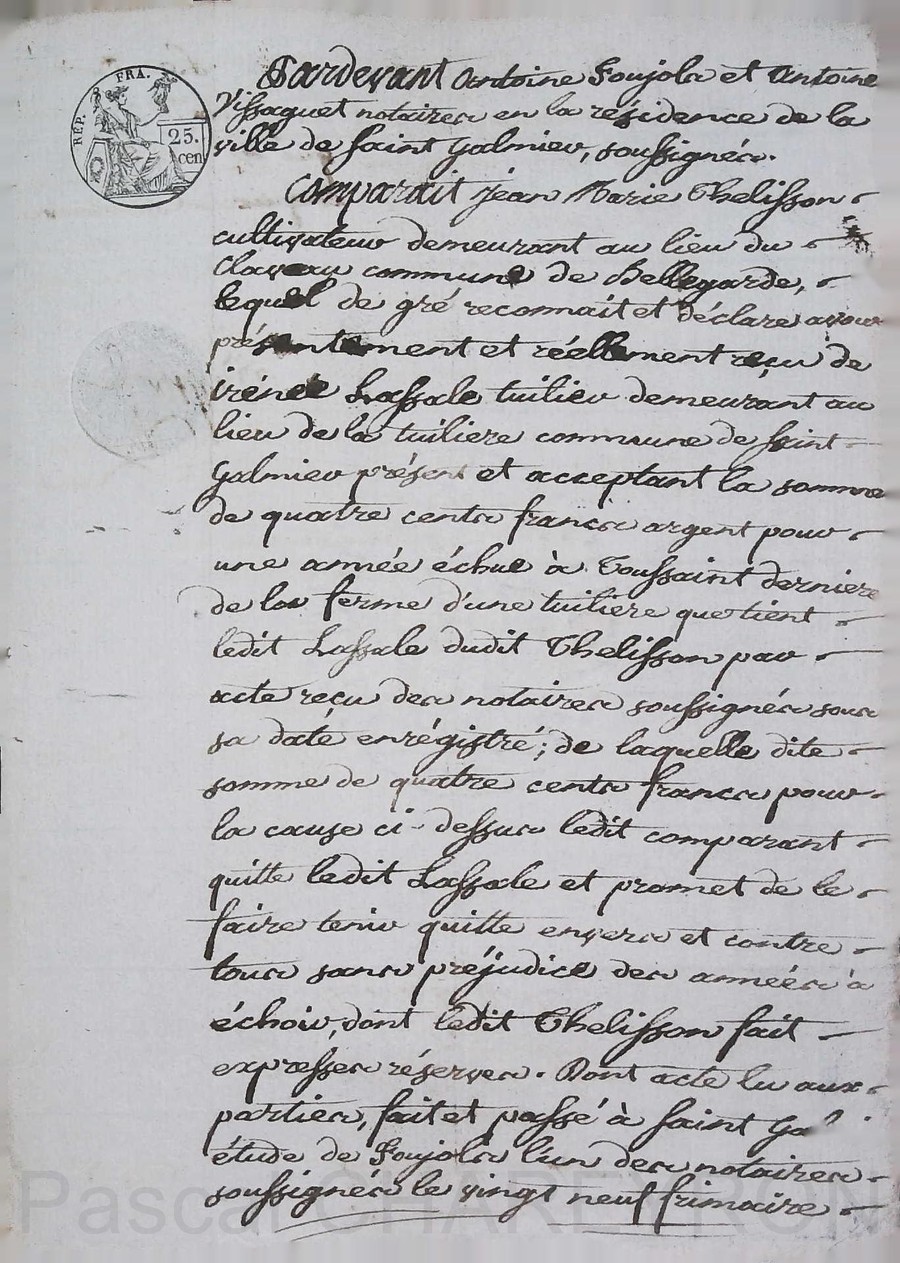 RÉP. FRA.
25.
cen
Pardevant antoine Soujols et antoine
Vissaguet notaires en la résidence de la
ville de saint galmier, soussignés.
Comparait jean Marie Thelisson
cultivateur demeurant au lieu du
claveau commune de Bellegarde,
lequel de gré reconnait et déclare avoir
présentement et réellement reçu de
irénée Lassale tuilier demeurant au
lieu de la tuiliere commune de saint
galmier présent et acceptant la somme
de quatre cents francs argent pour
une année échue à Toussaint derniere
de la ferme d'une tuiliere que tient
ledit Lassale dudit Thelisson par
acte reçu des notaires soussignés sous
sa date enrégistré; de laquelle dite
somme de quatre cents francs pour
la cause ci-dessus ledit comparant
quitte ledit Lassale et promet de le
faire tenir quitte envers et contre
tous sans préjudice des années à
échoir, dont ledit Thelisson fait
expresses réserves. Dont acte lu aux
parties, fait et passé à saint Gal
étude de Soujols l'un des notaires
soussignés le vingt neuf frimaire
Pascal CHAREYRON